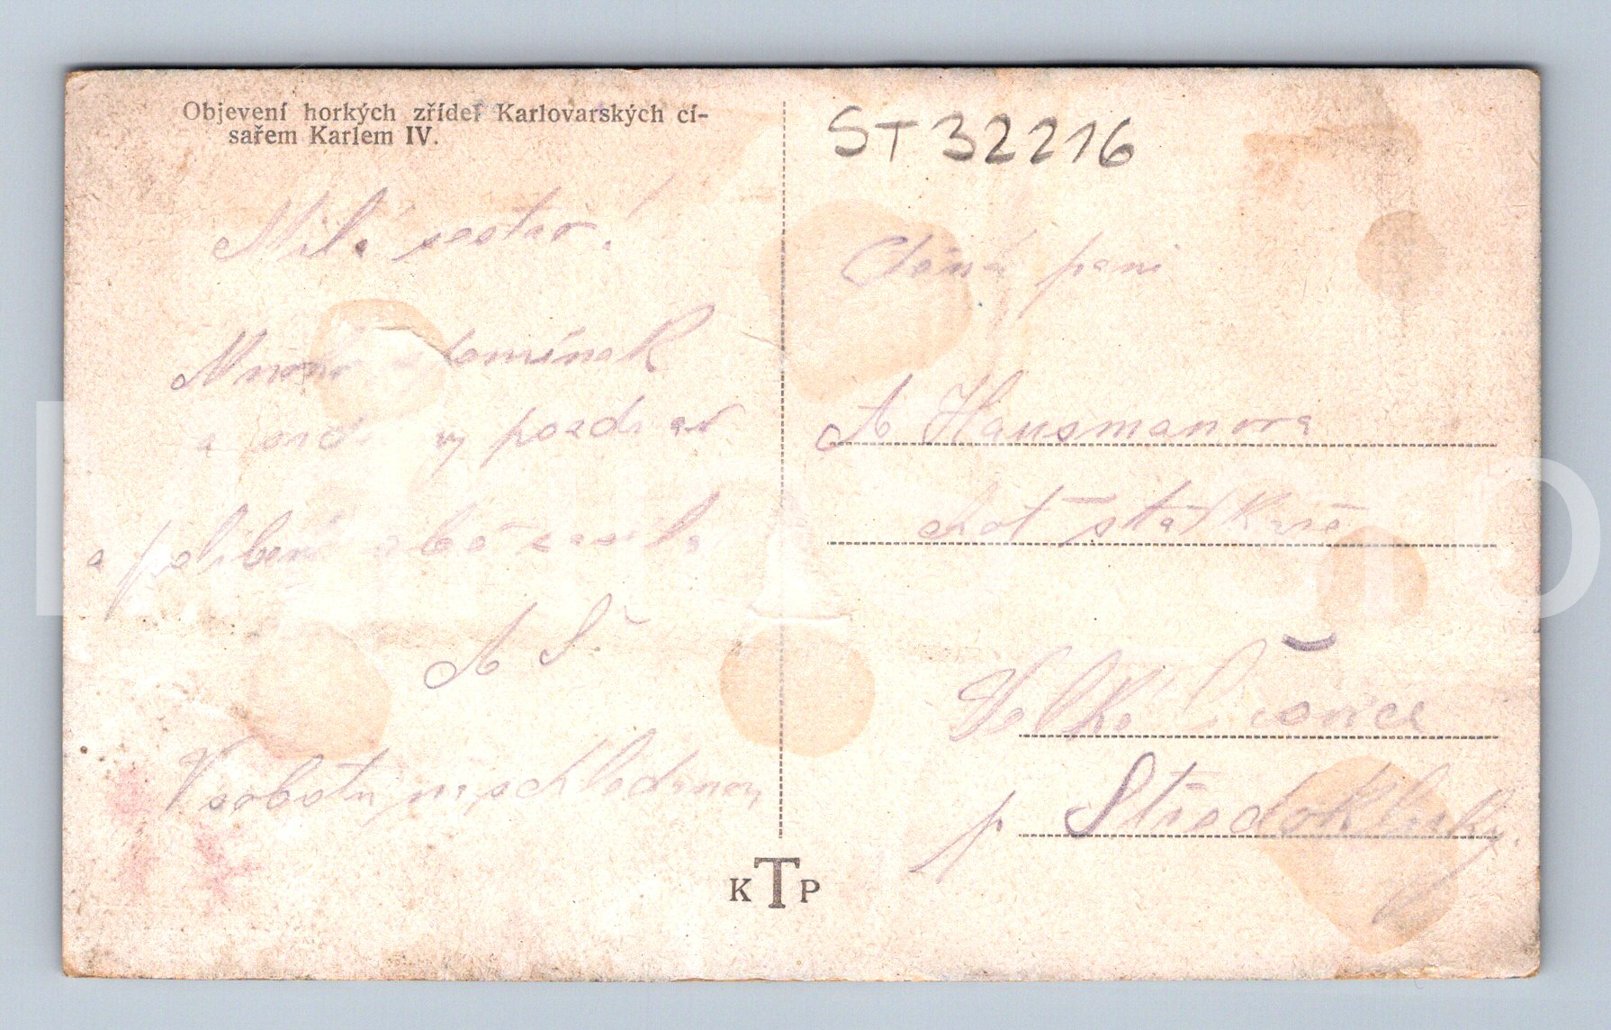 Objevení horkých zřídel Karlovarských cí-
sařem Karlem IV.
ST 32216
Milá sestro!
Mnoho vzpomínek
a pozdrav
a políbení zasílá
A Š
V sobotu naschledanou
Ctěná paní
A Hausmanova
choť statkáře
Velké Čičovice
p Středokluky.
K T P